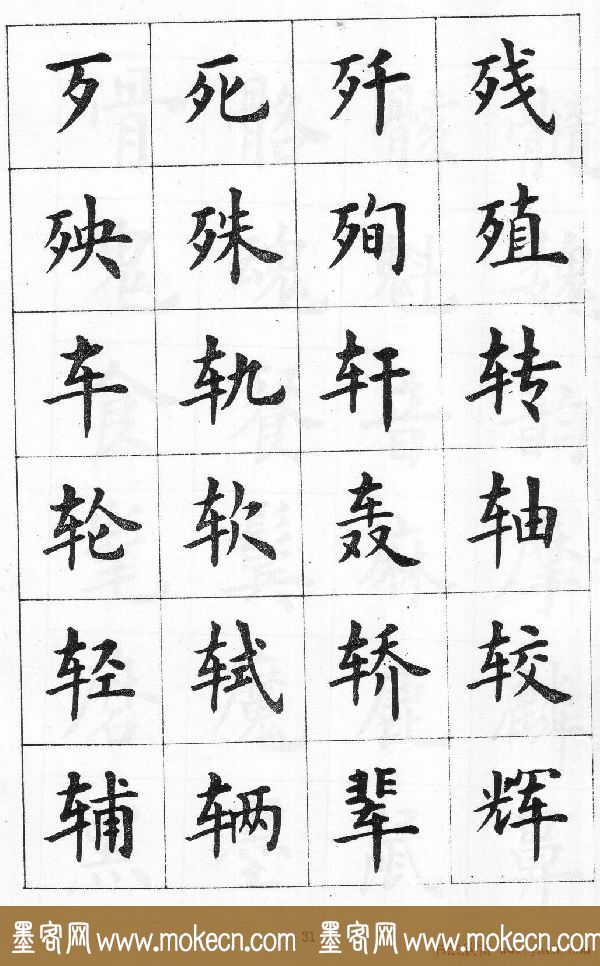 歹死歼残
殃殊殉殖
车轨轩转
轮软轰轴
轻轼轿较
辅辆辈辉
31
墨客网 www.mokecn.com 墨客网 www.mokecn.com